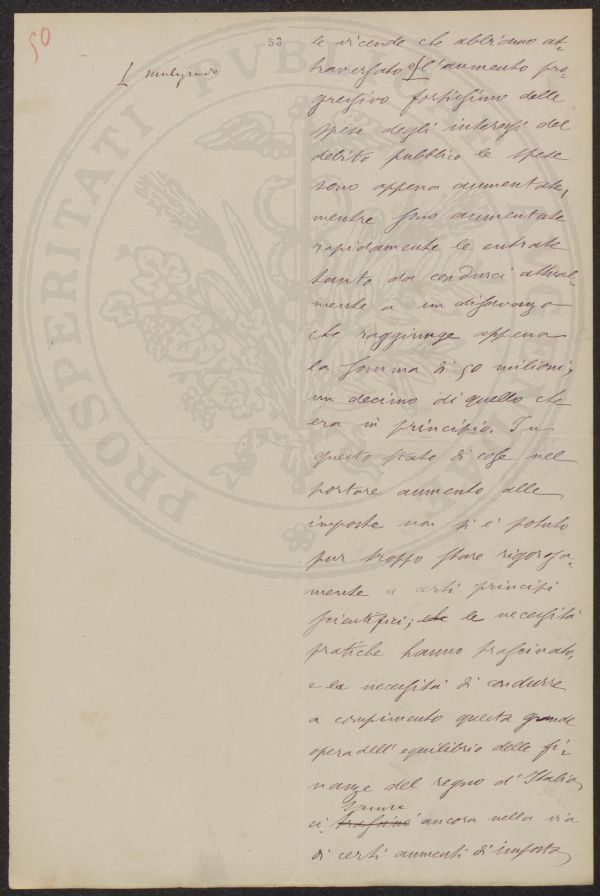 50
53
malgrado
le vicende che abbiamo at-
traversato e l'aumento pro-
gressivo fortissimo delle
spese degli interessi del
debito pubblico le spese
sono appena aumentate,
mentre sono aumentate
rapidamente le entrate
tanto da condurci attual-
mente a un disavanzo
che raggiunge appena
la somma di 50 milioni,
un decimo di quello che
era in principio. In
questo stato di cose nel
portare aumento alle
imposte non si è potuto
pur troppo stare rigorosa-
mente a certi principi
scientifici; che le necessità
pratiche hanno trascinato,
e la necessità di condurre
a compimento questa grande
opera dell'equilibrio delle fi-
nanze del regno d'Italia,
spinse
ci trascinò ancora nella via
di certi aumenti di imposta,
PROSPERITATI PVBLICAE